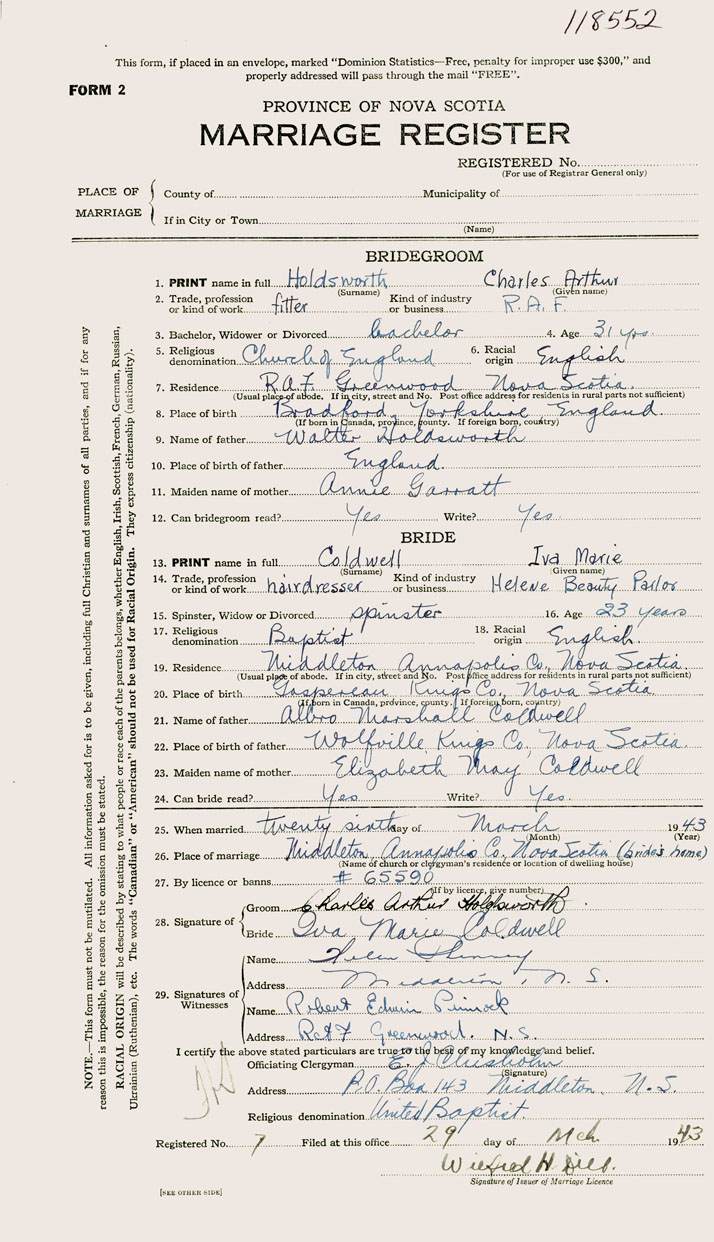 118552
This form, if placed in an envelope, marked "Dominion Statistics—Free, penalty for improper use $300," and
properly addressed will pass through the mail "FREE".
FORM 2
PROVINCE OF NOVA SCOTIA
MARRIAGE REGISTER
REGISTERED No.
(For use of Registrar General only)
PLACE OF MARRIAGE
County of Municipality of
If in City or Town
(Name)
BRIDEGROOM
1. PRINT name in full Holdsworth Charles Arthur
(Surname) (Given name)
2. Trade, profession or kind of work fitter Kind of industry or business R.A.F.
3. Bachelor, Widower or Divorced bachelor 4. Age 31 yrs.
5. Religious denomination Church of England 6. Racial origin English
7. Residence R.A.F. Greenwood Nova Scotia.
(Usual place of abode. If in city, street and No. Post office address for residents in rural parts not sufficient)
8. Place of birth Bradford, Yorkshire, England.
(If born in Canada, province, county. If foreign born, country)
9. Name of father Walter Holdsworth
10. Place of birth of father England.
11. Maiden name of mother Annie Garratt
12. Can bridegroom read? Yes Write? Yes.
BRIDE
13. PRINT name in full Coldwell Iva Marie
(Surname) (Given name)
14. Trade, profession or kind of work hairdresser Kind of industry or business Helene Beauty Parlor
15. Spinster, Widow or Divorced spinster 16. Age 23 years
17. Religious denomination Baptist 18. Racial origin English.
19. Residence Middleton Annapolis Co., Nova Scotia.
(Usual place of abode. If in city, street and No. Post office address for residents in rural parts not sufficient)
20. Place of birth Gaspereau Kings Co., Nova Scotia
(If born in Canada, province, county. If foreign born, country)
21. Name of father Albro Marshall Coldwell
22. Place of birth of father Wolfville Kings Co, Nova Scotia.
23. Maiden name of mother Elizabeth May Coldwell
24. Can bride read? Yes Write? Yes.
25. When married twenty sixth day of March 1943
(Month) (Year)
26. Place of marriage Middleton, Annapolis Co., Nova Scotia (bride's home)
(Name of church or clergyman's residence or location of dwelling house)
27. By licence or banns # 65590
(If by licence, give number)
28. Signature of
Groom Charles Arthur Holdsworth
Bride Iva Marie Coldwell
29. Signatures of Witnesses
Name Helen
Address Middleton, N. S.
Name Robert Edwin
Address RAF Greenwood. N. S.
I certify the above stated particulars are true to the best of my knowledge and belief.
Officiating Clergyman E. J. Chisholm
(Signature)
Address P.O. Box 143 Middleton, N. S.
Religious denomination United Baptist.
Registered No. 7 Filed at this office 29 day of Mch 1943
Wilfred H.
Signature of Issuer of Marriage Licence
[SEE OTHER SIDE]
NOTE.—This form must not be mutilated. All information asked for is to be given, including full Christian and surnames of all parties, and if for any
reason this is impossible, the reason for the omission must be stated.
RACIAL ORIGIN will be described by stating to what people or race each of the parents belongs, whether English, Irish, Scottish, French, German, Russian,
Ukrainian (Ruthenian), etc. The words "Canadian" or "American" should not be used for Racial Origin. They express citizenship (nationality).